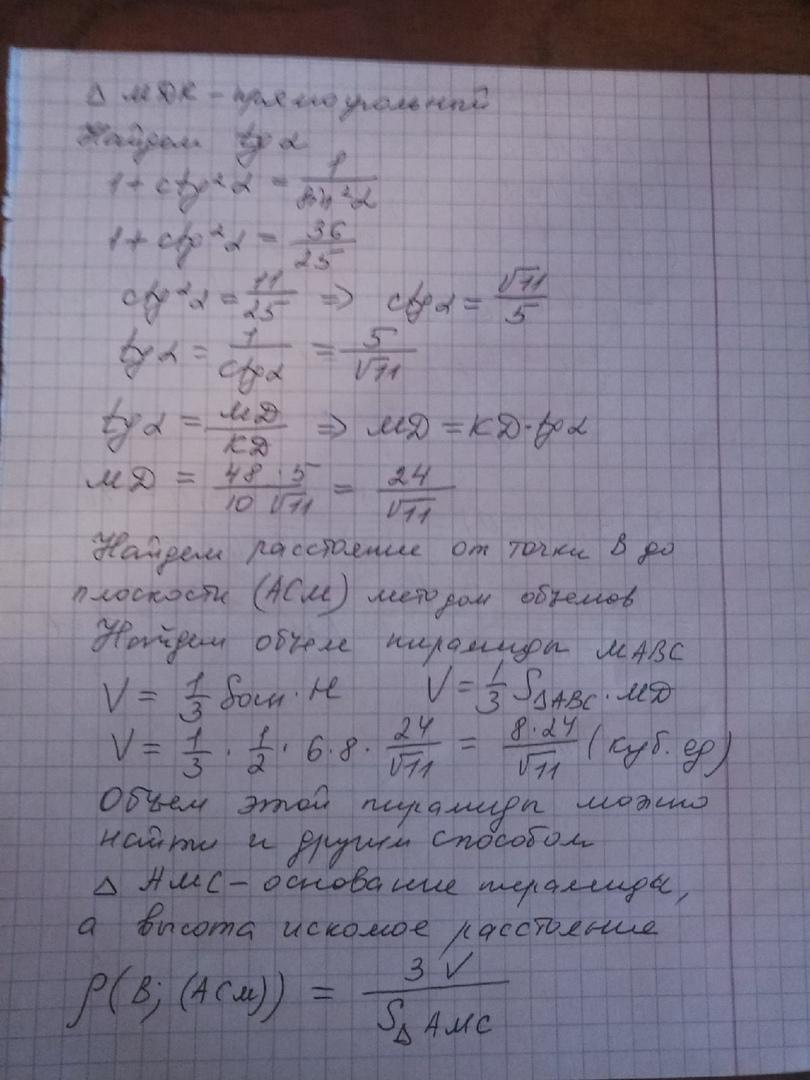 Δ МДК – прямоугольный
Найдем tg α
1 + ctg²α = 1/sin²α
1 + ctg²α = 36/25
ctg²α = 11/25 ⇒ ctg α = √11/5
tg α = 1/ctg α = 5/√11
tg α = МД/КД ⇒ МД = КД·tg α
МД = 48·5/10√11 = 24/√11
Найдем расстояние от точки В до
плоскости (АСМ) методом объемов
Найдем объем пирамиды МАВС
V = 1/3 Sосн·H V = 1/3 S△ABC·МД
V = 1/3 · 1/2 · 6·8 · 24/√11 = 8·24/√11 (куб. ед)
Объем этой пирамиды можно
найти и другим способом
Δ АМС – основание пирамиды,
а высота искомое расстояние
ρ(В; (АСМ)) = 3V/S△АМС